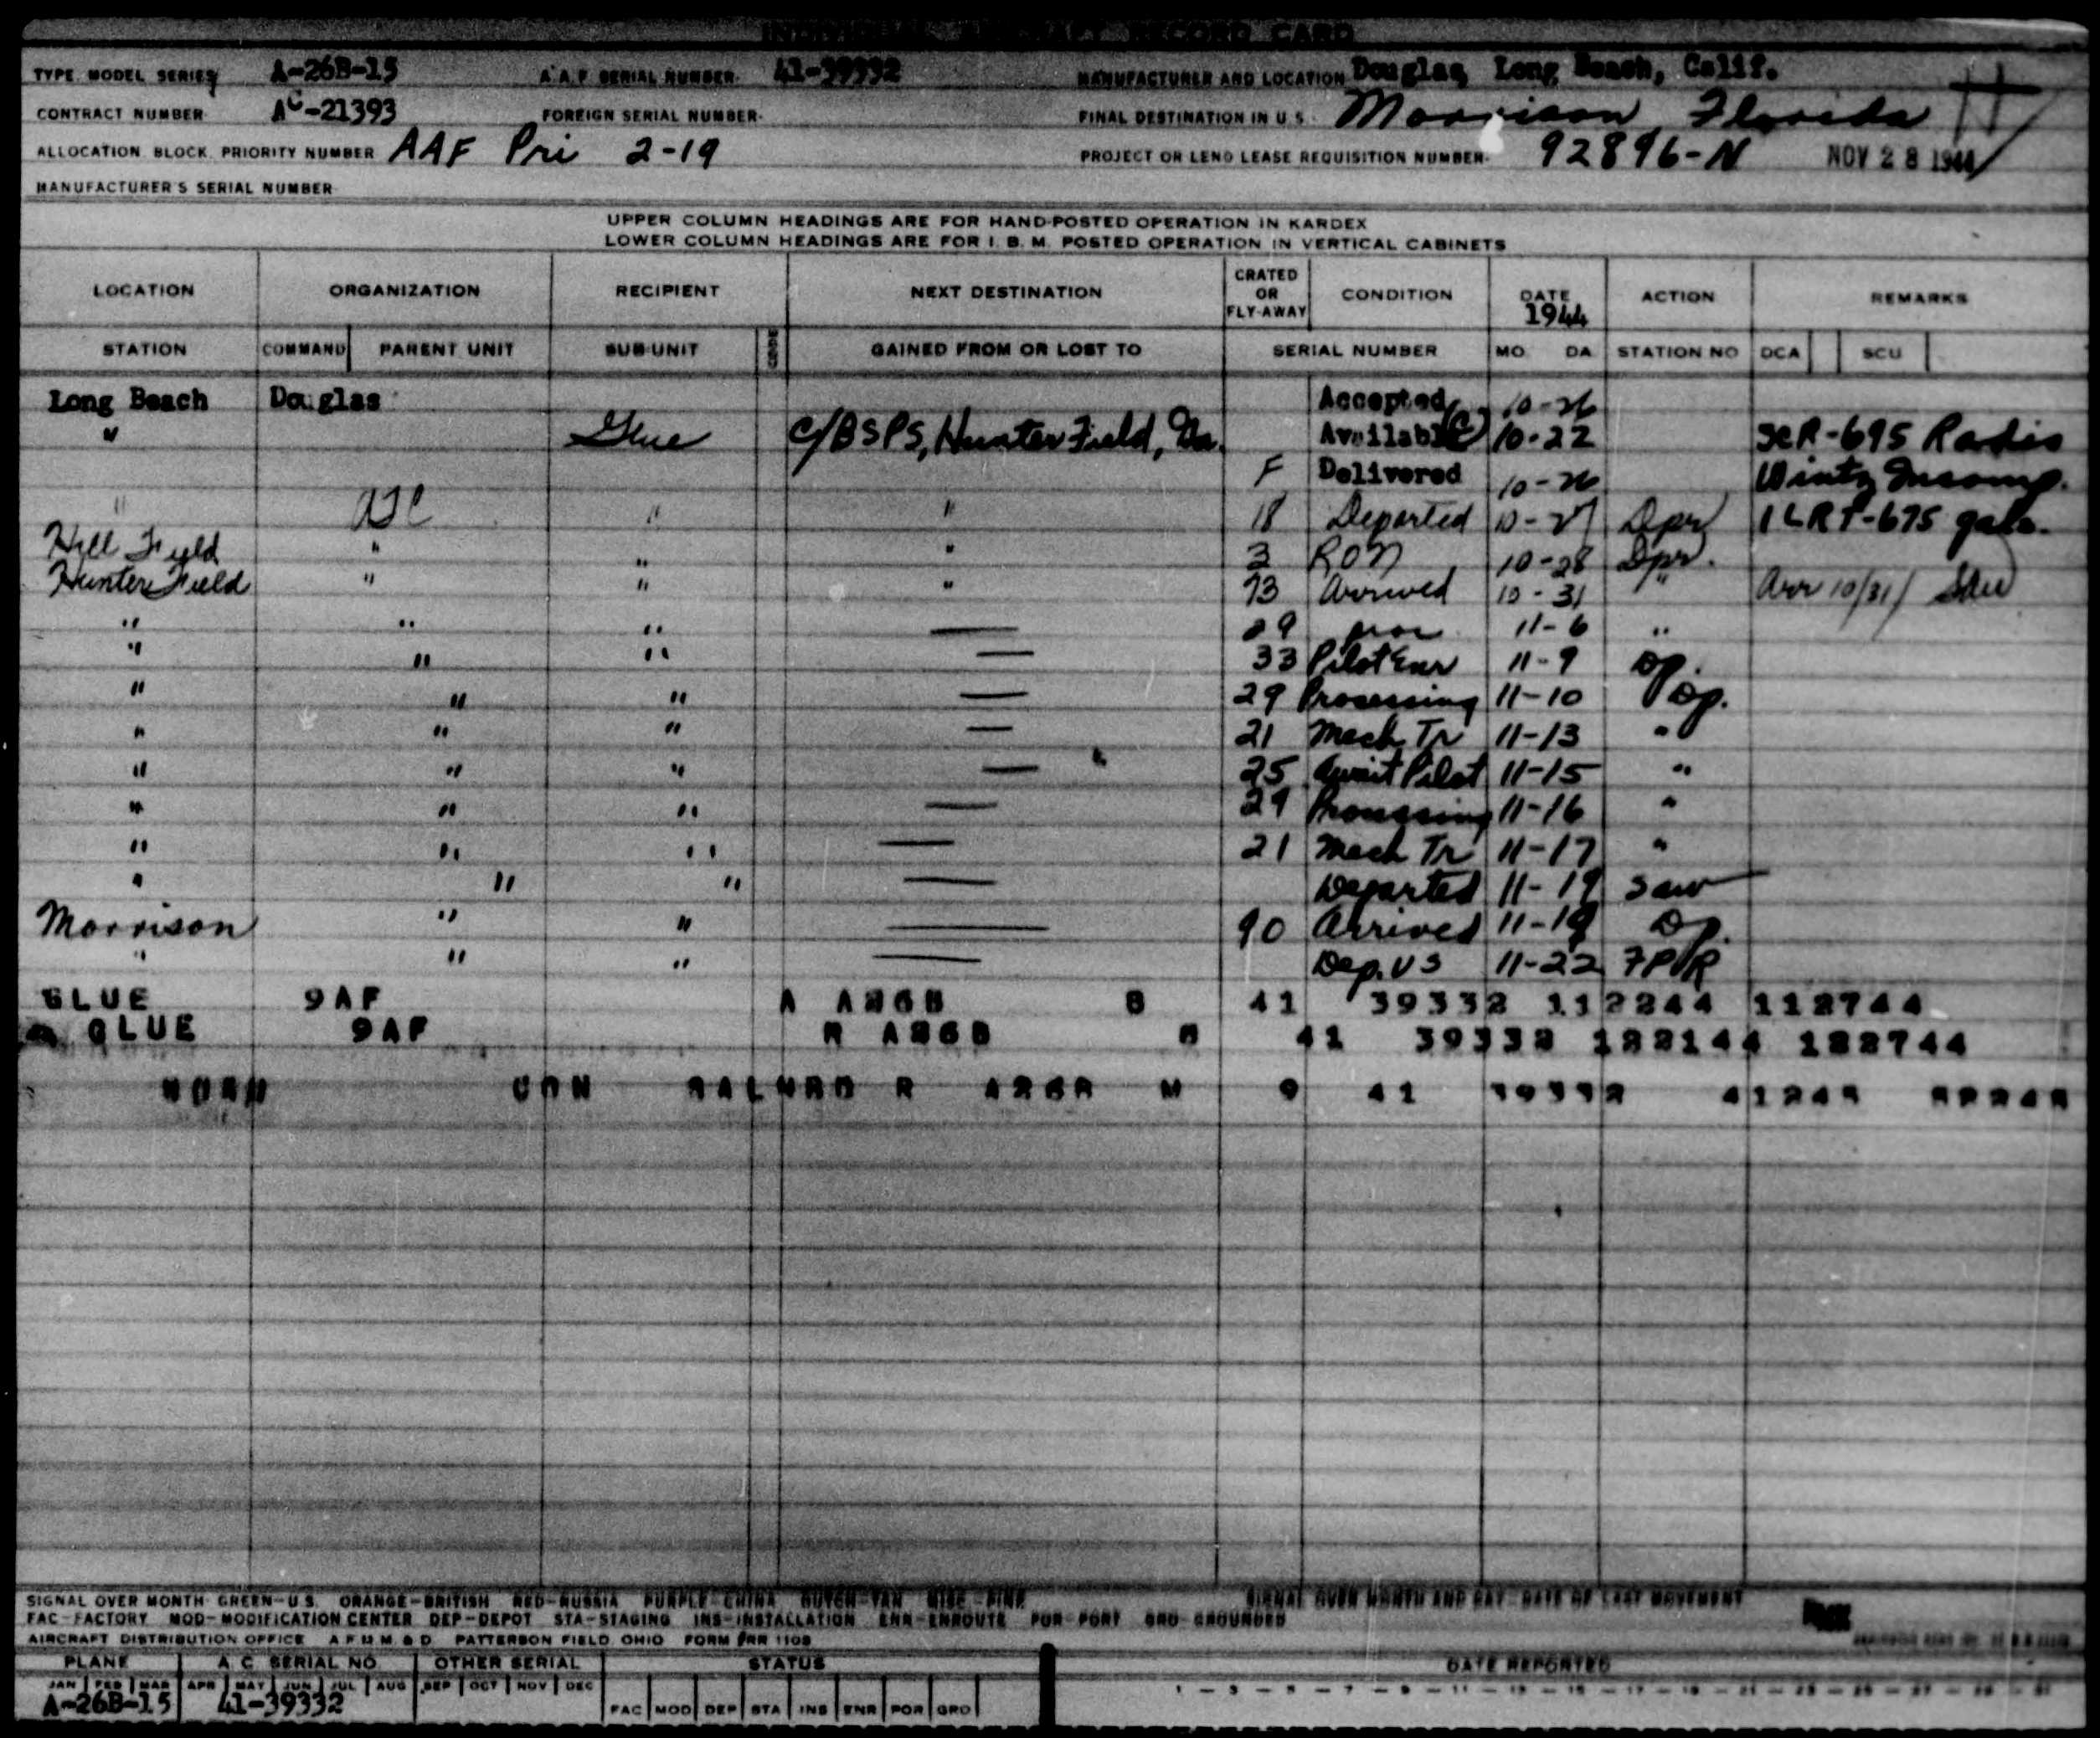 INDIVIDUAL AIRCRAFT RECORD CARD
TYPE MODEL SERIES A-26B-15 A.A.F SERIAL NUMBER 41-39332 MANUFACTURER AND LOCATION Douglas, Long Beach, Calif.
CONTRACT NUMBER AC-21393 FOREIGN SERIAL NUMBER FINAL DESTINATION IN U S Morrison Florida
ALLOCATION BLOCK PRIORITY NUMBER AAF Pri 2-19 PROJECT OR LEND LEASE REQUISITION NUMBER 92896-N NOV 28 1944
MANUFACTURER'S SERIAL NUMBER
UPPER COLUMN HEADINGS ARE FOR HAND-POSTED OPERATION IN KARDEX
LOWER COLUMN HEADINGS ARE FOR I. B. M. POSTED OPERATION IN VERTICAL CABINETS
LOCATION ORGANIZATION RECIPIENT NEXT DESTINATION CRATED OR FLY-AWAY CONDITION DATE 1944 ACTION REMARKS
STATION COMMAND PARENT UNIT SUB-UNIT GAINED FROM OR LOST TO SERIAL NUMBER MO DA STATION NO DCA SCU
Long Beach Douglas Accepted 10-26
" Glue C/BSPS, Hunter Field, Ga. Available (C) 10-22 SCR-695 Radio
F Delivered 10-26 Wintz Incomp.
" ATC " " 18 Departed 10-27 Dpr 1 LRT-675 gals.
Hill Field " " " 3 RON 10-28 Dpr.
Hunter Field " " " 73 Arrived 10-31 " Arr 10/31/ Sau
" " " — 29 proc 11-6 "
" " " — 33 Pilot Enr 11-9 Dp.
" " " — 29 Processing 11-10 Dp.
" " " — 21 Mech Tr 11-13 "
" " " — 25 Await Pilot 11-15 "
" " " — 29 Processing 11-16 "
" " " — 21 Mech Tr 11-17 "
" " " — Departed 11-19 Sav
Morrison " " — 90 Arrived 11-19 Dp.
" " " — Dep. US 11-22 FPR
GLUE 9AF A A26B B 41 39332 112244 112744
GLUE 9AF R A26B 41 39332 122144 122744
CON R 9 41 39332
SIGNAL OVER MONTH GREEN-U.S. ORANGE-BRITISH RED-RUSSIA PURPLE-CHINA DUTCH-TAN MISC-PINK SIGNAL OVER MONTH AND DAY DATE OF LAST MOVEMENT
FAC-FACTORY MOD-MODIFICATION CENTER DEP-DEPOT STA-STAGING INS-INSTALLATION ENR-ENROUTE POR-PORT GRD-GROUNDED
AIRCRAFT DISTRIBUTION OFFICE PATTERSON FIELD OHIO FORM 1108
PLANE A C SERIAL NO OTHER SERIAL STATUS DATE REPORTED
JAN FEB MAR APR MAY JUN JUL AUG SEP OCT NOV DEC
A-26B-15 41-39332 FAC MOD DEP STA INS ENR POR GRD